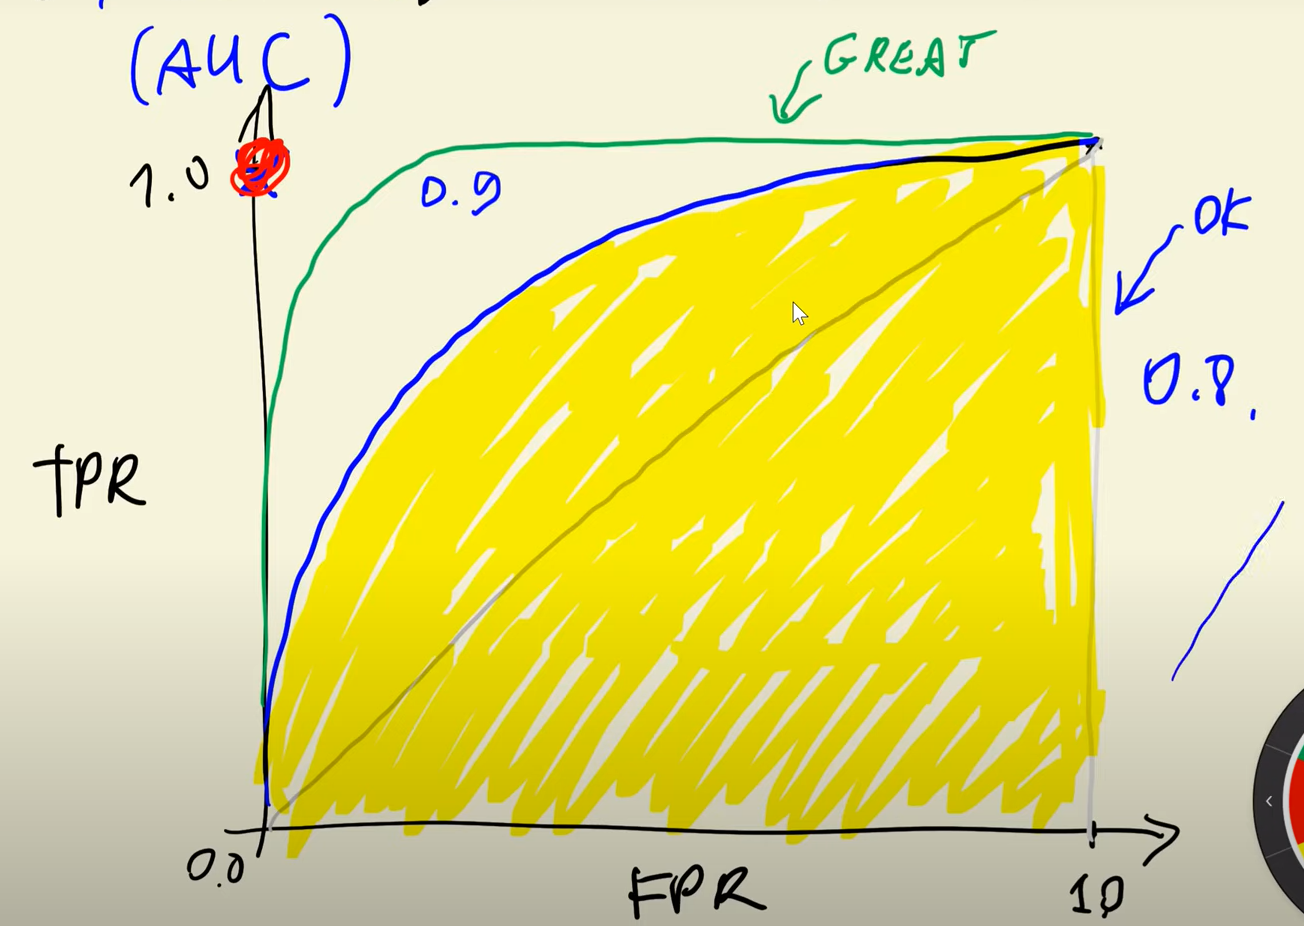 (AUC)
GREAT
1.0
0.9
OK
0.8.
TPR
0.0
FPR
10